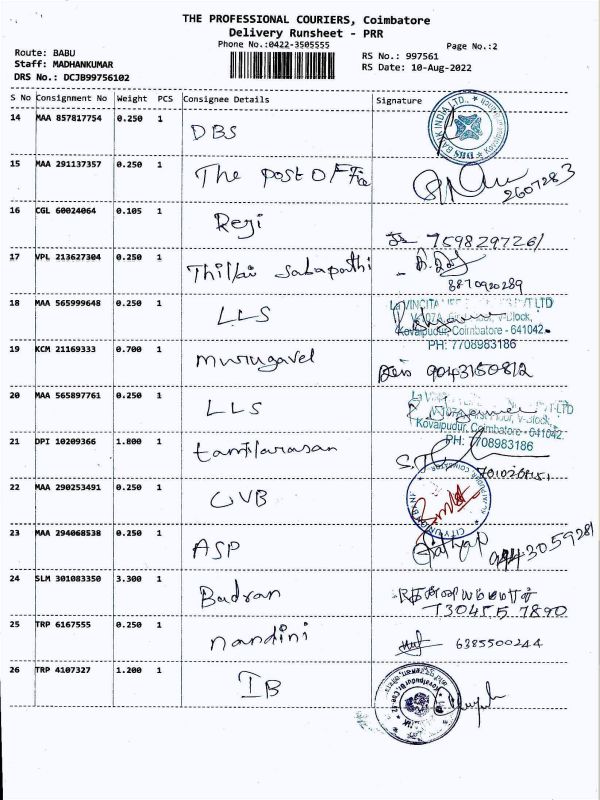 THE PROFESSIONAL COURIERS, Coimbatore
Delivery Runsheet - PRR
Phone No.:0422-3505555
Page No.:2
Route: BABU
RS No.: 997561
Staff: MADHANKUMAR
RS Date: 10-Aug-2022
DRS No.: DCJB99756102
S No Consignment No Weight PCS Consignee Details Signature
14 MAA 857817754 0.250 1 DBS
DBS BANK INDIA LTD.,
15 MAA 291137357 0.250 1 The post OFFice
2607283
16 CGL 60024064 0.105 1 Reji
7598297261
17 VPL 213627304 0.250 1 Thillai Sabapathi
8870920289
18 MAA 565999648 0.250 1 LLS
V-Block,
Kovaipudur, Coimbatore - 641042.
PH: 7708983186
19 KCM 21169333 0.700 1 murugavel
9043150812
20 MAA 565897761 0.250 1 LLS
V-Block,
Kovaipudur, Coimbatore - 641042.
PH: 7708983186
21 DPI 10209366 1.800 1 tamilarasan
22 MAA 290253491 0.250 1 CVB
23 MAA 294068538 0.250 1 ASP
24 SLM 301083350 3.300 1 Badran
25 TRP 6167555 0.250 1 nandini
6385500244
26 TRP 4107327 1.200 1 IB